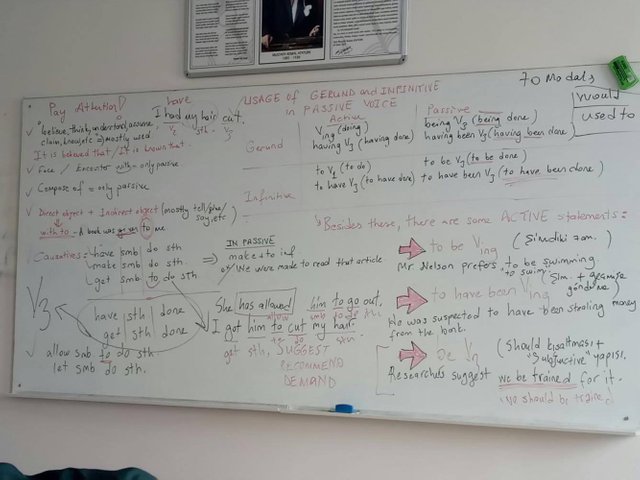 70 Modals
would
used to
Pay Attention!
have
I had my hair cut.
V2 sth. V3
USAGE of GERUND and INFINITIVE
in PASSIVE VOICE
"believe, think, understand, assume
claim, know, etc. mostly used
It is believed that / It is known that.
Face / Encounter with = only passive
Compose of = only passive
Direct object + Indirect object (mostly tell/give/
say, etc)
with to → A book was given to me
Active
Passive
Gerund
Ving (doing)
being V3 (being done)
having V3 (having done)
having been V3 (having been done)
Infinitive
to V1 (to do)
to be V3 (to be done)
to have V3 (to have done)
to have been V3 (to have been done)
Causatives: have smb do sth
make smb do sth
get smb to do sth
IN PASSIVE
make → to inf.
We were made to read that article.
V3
have sth done
get sth done
allow smb to do sth
let smb do sth.
She has allowed him to go out.
allow smb to do
I got him to cut my hair.
get sth,
SUGGEST
RECOMMEND
DEMAND
Besides these, there are some ACTIVE statements:
to be Ving (Şimdiki zam.)
Mr Nelson prefers to be swimming.
to swim
to have been Ving
He was suspected to have been stealing money
from the bank.
(Should kısaltması +
"Subjunctive" yapısı.
Researchers suggest we be trained for it.
we should be trained